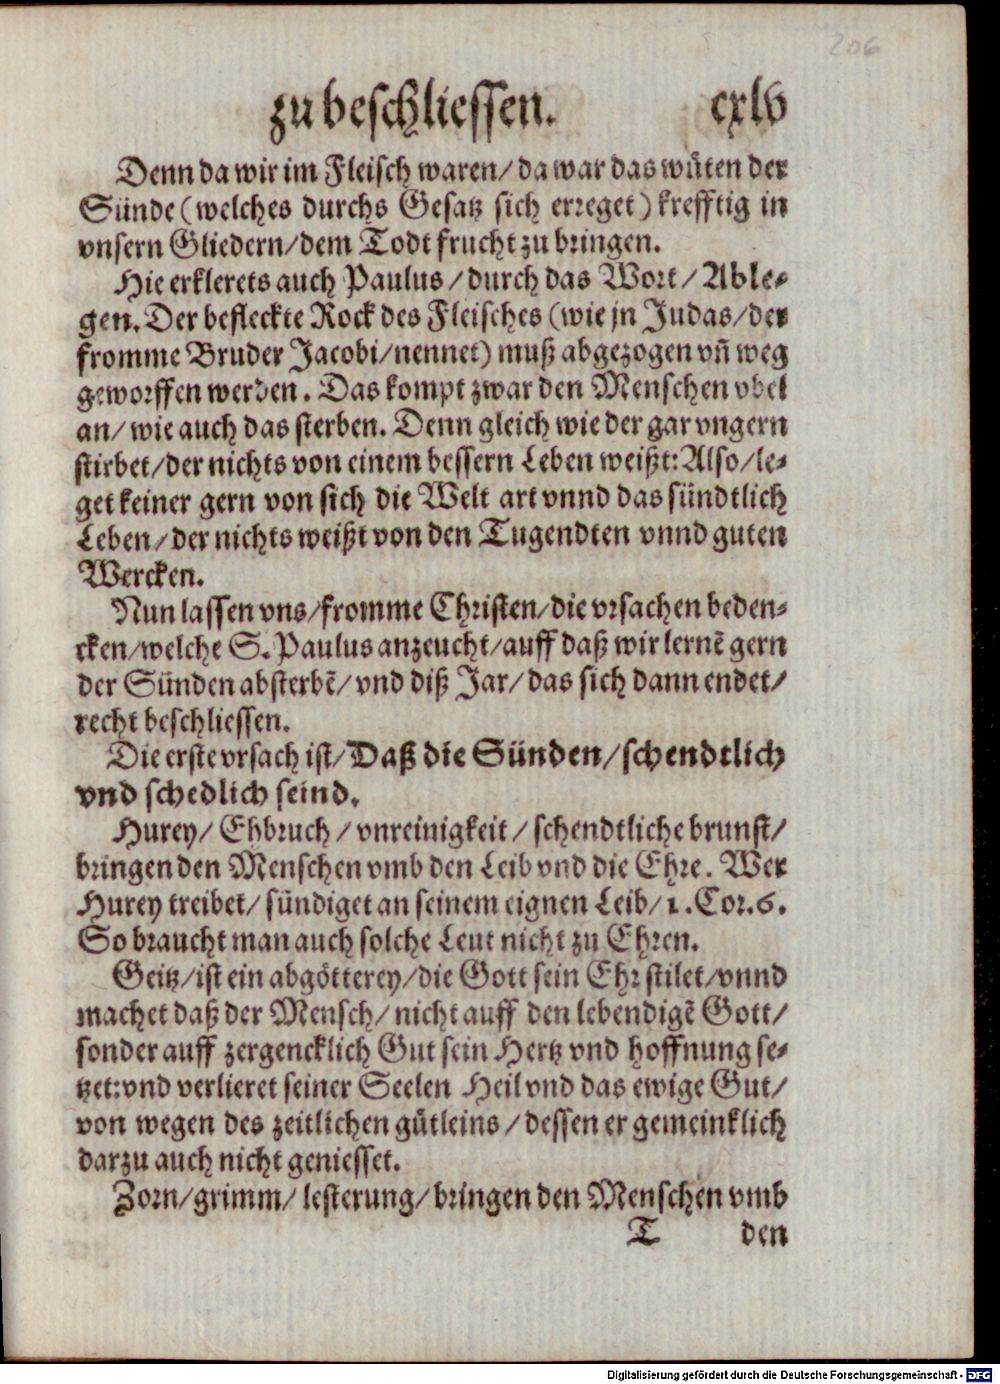 206
zu beschliessen. cxlv
Denn da wir im Fleisch waren/ da war das wuͤten der
Sünde (welches durchs Gesatz sich erreget) krefftig in
vnsern Gliedern/dem Todt frucht zu bringen.
Hie erklerets auch Paulus/durch das Wort/ Able-
gen. Der befleckte Rock des Fleisches (wie jn Judas/der
fromme Bruder Jacobi/nennet) muß abgezogen vñ weg
geworffen werden. Das kompt zwar den Menschen vbel
an/ wie auch das sterben. Denn gleich wie der gar vngern
stirbet/der nichts von einem bessern Leben weißt: Also/le-
get keiner gern von sich die Welt art vnnd das sündtlich
Leben/ der nichts weißt von den Tugendten vnnd guten
Wercken.
Nun lassen vns/fromme Christen/die vrsachen beden-
cken/welche S. Paulus anzeucht/auff daß wir lernẽ gern
der Sünden absterbẽ/ vnd diß Jar/ das sich dann endet/
recht beschliessen.
Die erste vrsach ist/Daß die Sünden/schendtlich
vnd schedlich seind.
Hurey/ Ehbruch/ vnreinigkeit/ schendtliche brunst/
bringen den Menschen vmb den Leib vnd die Ehre. Wer
Hurey treibet/ sündiget an seinem eignen Leib/1. Cor. 6.
So braucht man auch solche Leut nicht zu Ehren.
Geitz/ist ein abgötterey/die Gott sein Ehr stilet/vnnd
machet daß der Mensch/ nicht auff den lebendigẽ Gott/
sonder auff zergencklich Gut sein Hertz vnd hoffnung se-
tzet: vnd verlieret seiner Seelen Heil vnd das ewige Gut/
von wegen des zeitlichen guͤtleins/dessen er gemeinklich
darzu auch nicht geniesset.
Zorn/grimm/ lesterung/ bringen den Menschen vmb
T den
Digitalisierung gefördert durch die Deutsche Forschungsgemeinschaft - DFG